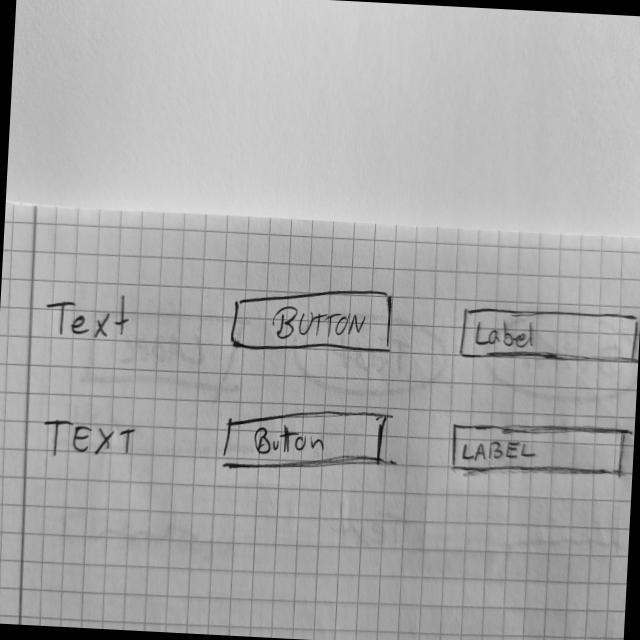 Text BUTTON Label
TEXT Button LABEL